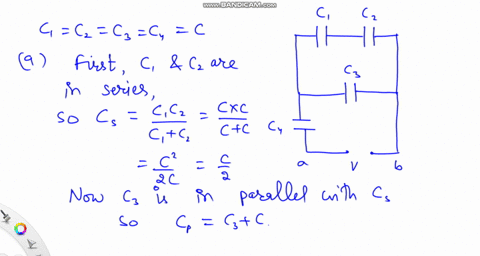 WWW.BANDICAM.COM
C₁ = C₂ = C₃ = C₄ = C
(a) First, C₁ & C₂ are
in series,
so Cₛ = C₁C₂/C₁+C₂ = C×C/C+C
= C²/2C = C/2
Now C₃ is in parallel with Cₛ
so Cₚ = C₃ + C.
C₁ C₂
C₃
C₄
a V b